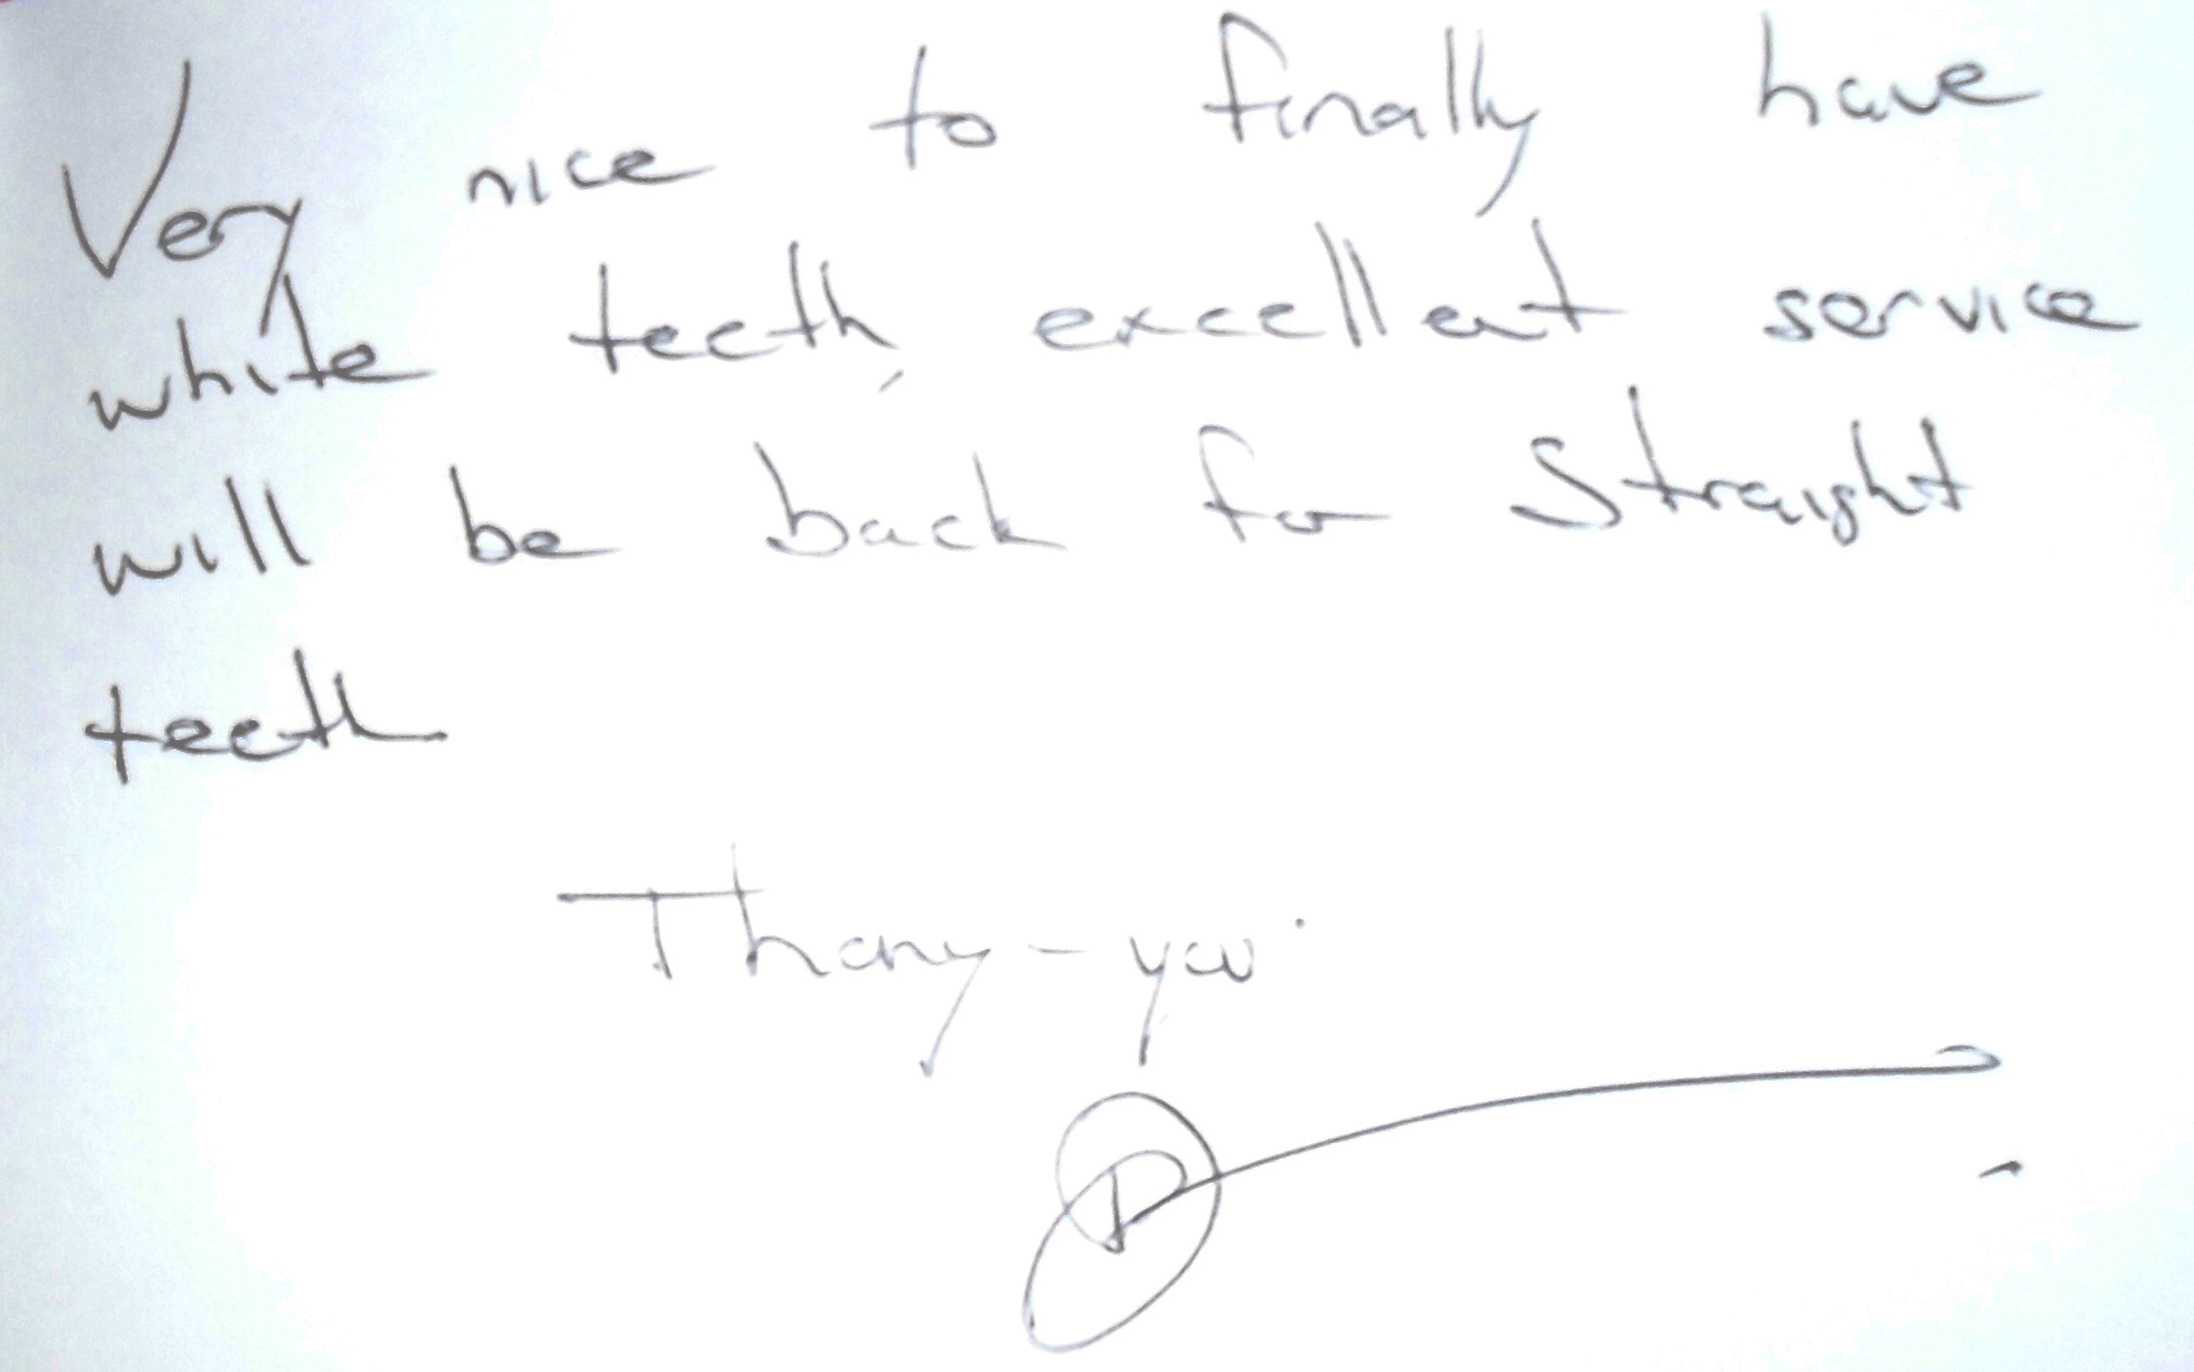 Very nice to finally have
white teeth, excellent service
will be back for Straight
teeth
Thany-you.